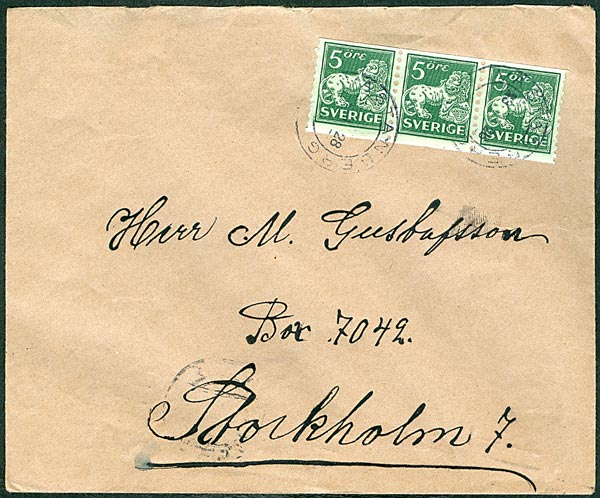 5 öre 5 öre 5 öre
SVERIGE SVERIGE SVERIGE
28
Herr M. Gustafsson
Box 7042.
Stockholm 7.